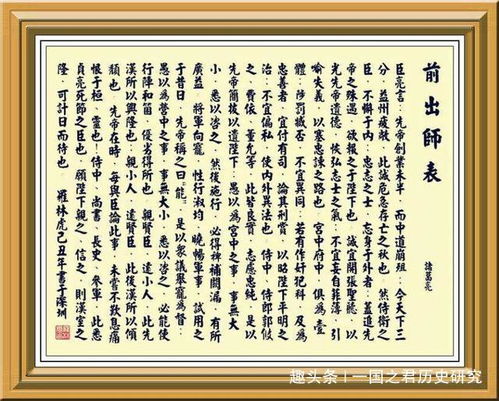 前出師表
諸葛亮
臣亮言：先帝創業未半，而中道崩殂；今天下三
分，益州疲敝，此誠危急存亡之秋也。然侍衛之
臣，不懈于内；忠志之士，忘身于外者：蓋追先
帝之殊遇，欲報之于陛下也。誠宜開張聖聽，以
光先帝遺德，恢弘志士之氣；不宜妄自菲薄，引
喻失義，以塞忠諫之路也。宮中府中，俱爲壹
體；陟罰臧否，不宜異同：若有作奸犯科，及爲
忠善者，宜付有司，論其刑賞，以昭陛下平明之
治；不宜偏私，使内外異法也。侍中、侍郎郭攸
之、費依、董允等，此皆良實，志慮忠純，是以
先帝簡拔以遺陛下：愚以爲宮中之事，事無大
小，悉以咨之，然後施行，必得裨補闕漏，有所
廣益。將軍向寵，性行淑均，曉暢軍事，試用之
于昔日，先帝稱之曰“能”，是以衆議舉寵爲督：
愚以爲營中之事，事無大小，悉以咨之，必能使
行陣和笛，優劣得所也。親賢臣，遠小人，此先
漢所以興隆也；親小人，遠賢臣，此後漢所以傾
頹也。先帝在時，每與臣論此事，未嘗不歎息痛
恨于桓、靈也！侍中、尚書、長史、參軍，此悉
貞亮死節之臣也，願陛下親之、信之，則漢室之
隆，可計日而待也。 羅林虎己丑年書于深圳
趣头条 | 一国之君历史研究